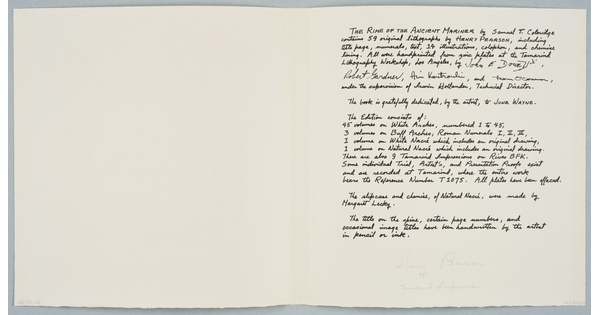 THE RIME OF THE ANCIENT MARINER by Samuel T. Coleridge
contains 59 original lithographs by HENRY PEARSON, including
title page, numerals, text, 24 illustrations, colophon, and chemise
lining. All were handprinted from zinc plates at the Tamarind
Lithography Workshop, Los Angeles, by John E Dowell Jr
Robert Gardner, and
under the supervision of Irwin Hollander, Technical Director.
The book is gratefully dedicated, by the artist, to JUNE WAYNE.
The Edition consists of:
45 volumes on White Arches, numbered 1 to 45,
3 volumes on Buff Arches, Roman Numerals I, II, III,
1 volume on White Nacré which includes an original drawing,
1 volume on Natural Nacré which includes an original drawing.
There are also 9 Tamarind Impressions on Rives BFK.
Some individual Trial, Artist's, and Presentation Proofs exist
and are recorded at Tamarind, where the entire work
bears the Reference Number T 1075. All plates have been effaced.
The slipcase and chemise, of Natural Nacré, were made by
Margaret Lecky.
The title on the spine, certain page numbers, and
occasional image titles have been handwritten by the artist
in pencil or ink.
Henry Pearson
Tamarind Impression